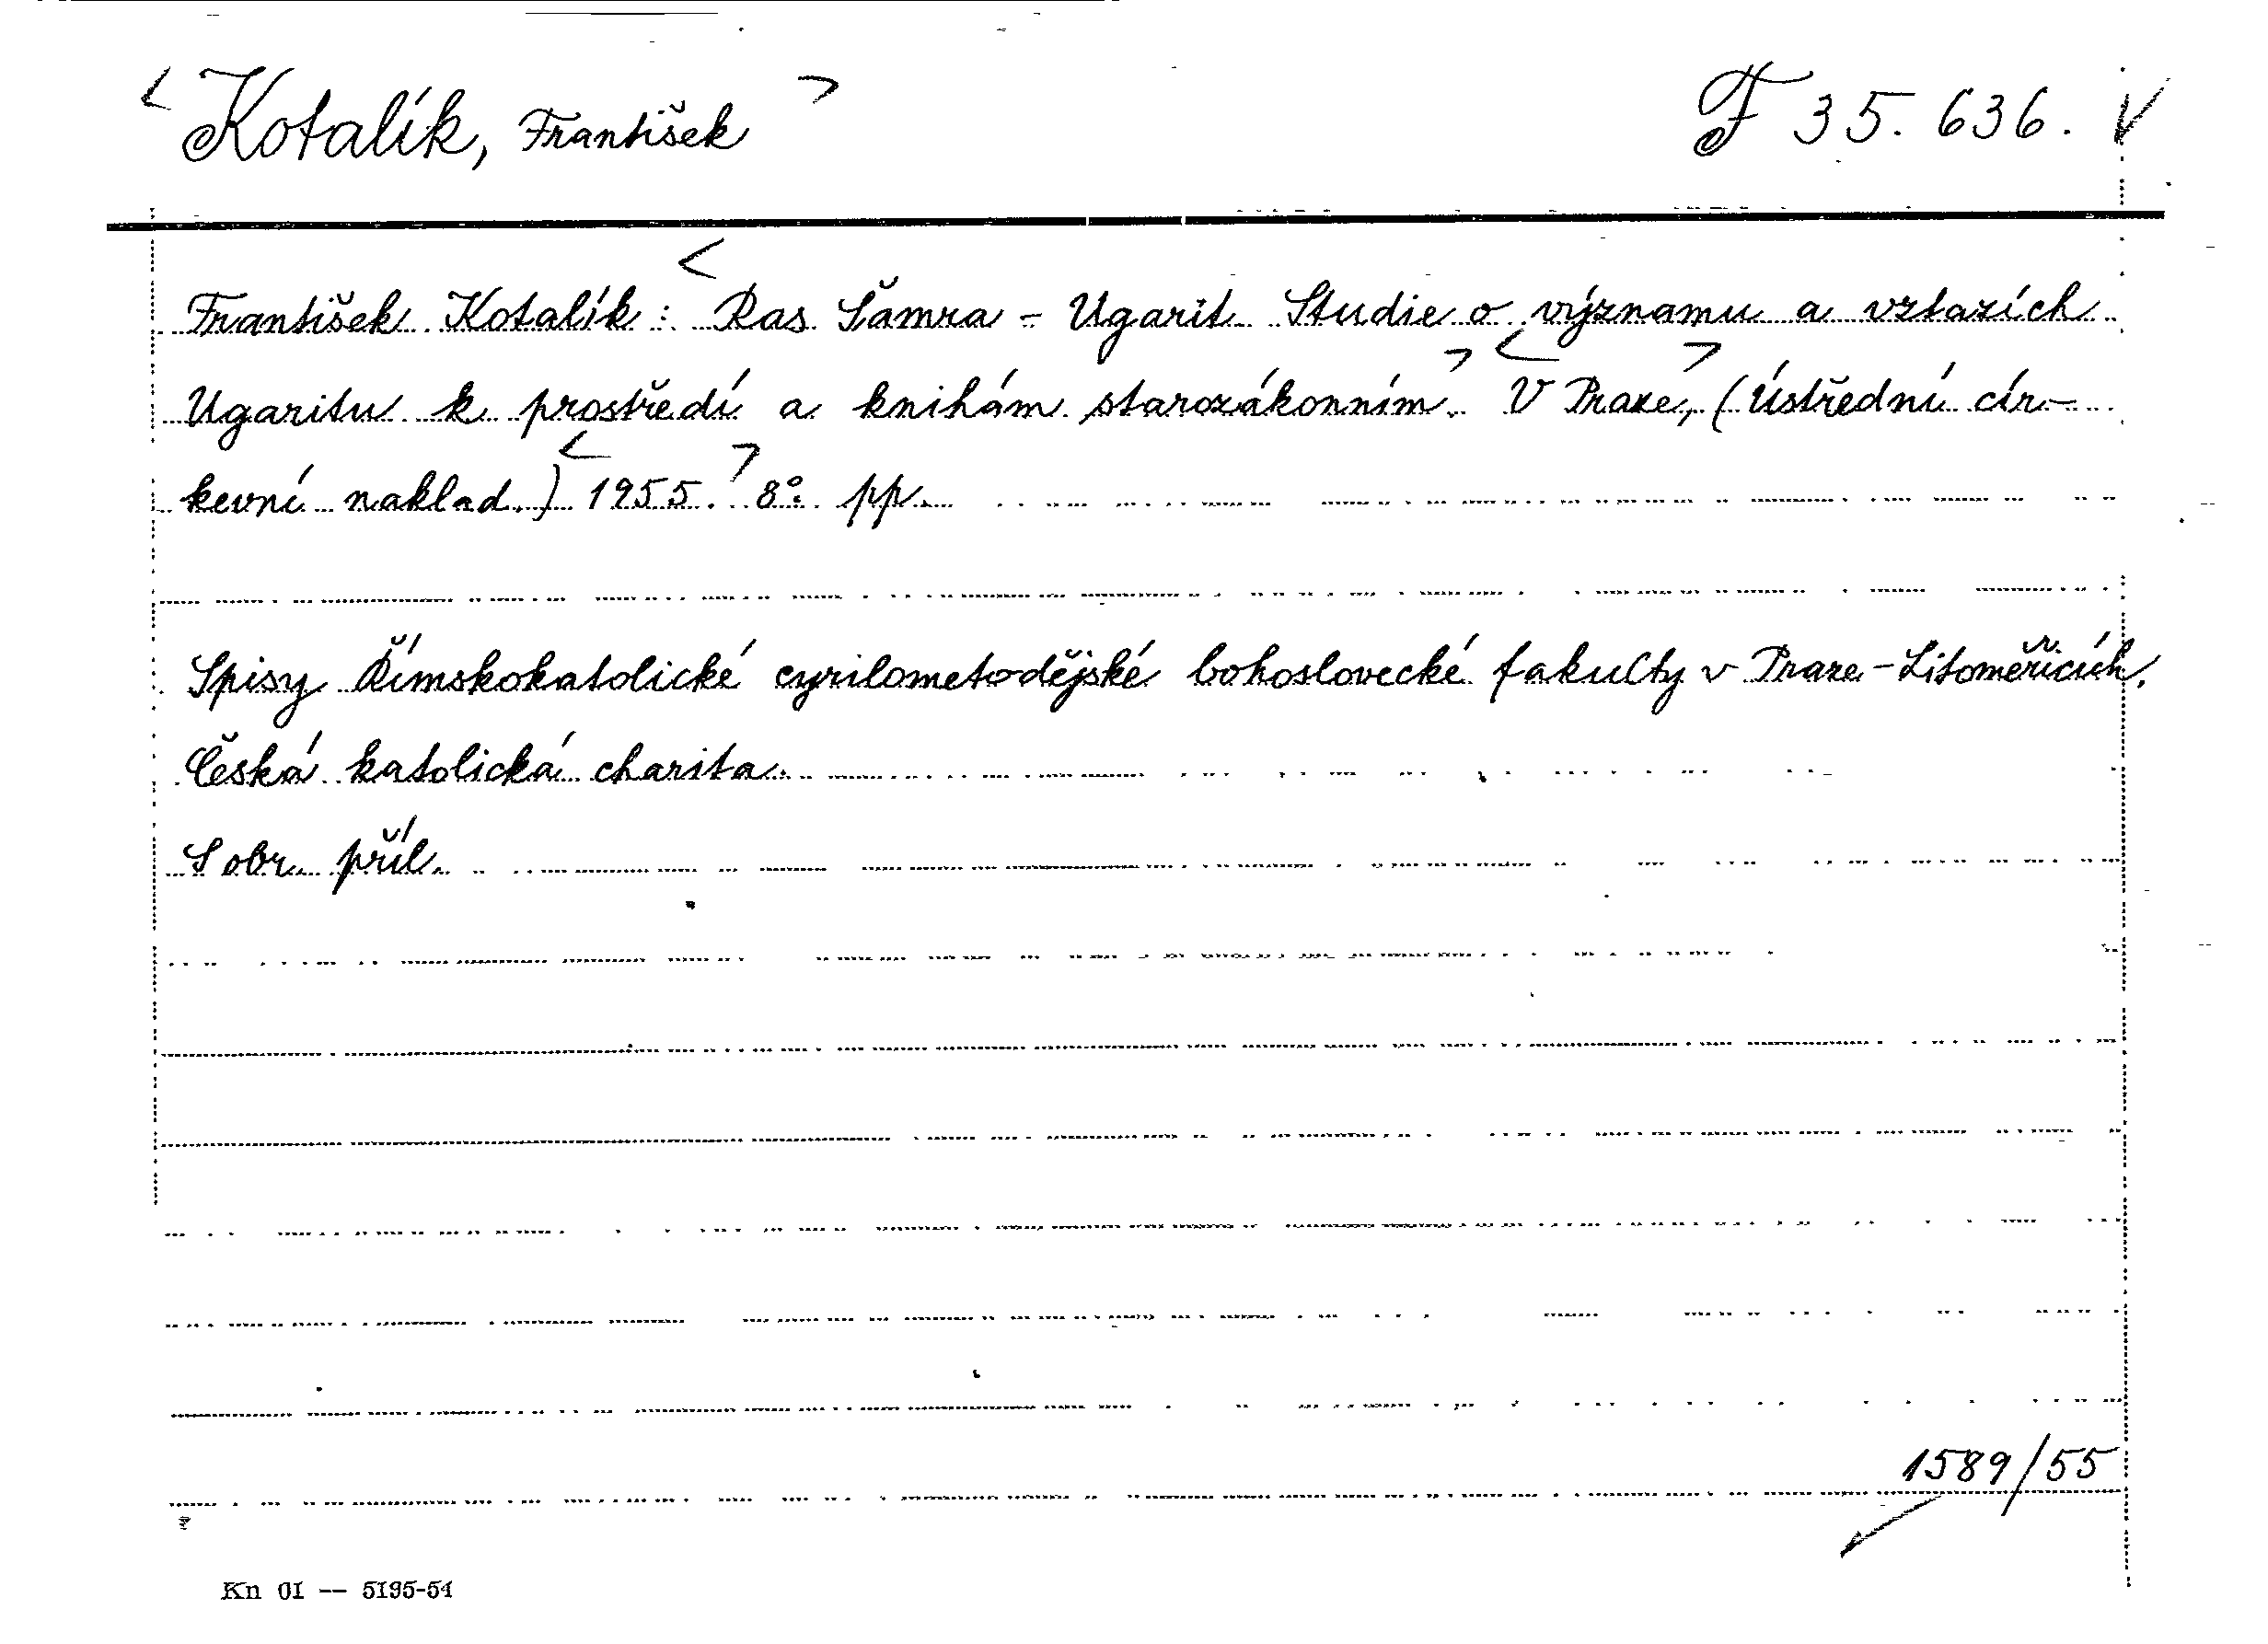 Kotalík, František
F 35.636.
František Kotalík: Ras Šamra - Ugarit. Studie o významu a vztazích
Ugaritu k prostředí a knihám starozákonním. V Praze, (Ústřední cír-
kevní naklad.) 1955. 8°. pp.
Spisy Římskokatolické cyrilometodějské bohoslovecké fakulty v Praze - Litoměřicích.
Česká katolická charita.
S obr. příl.
1589/55
Kn 01 — 5195-54